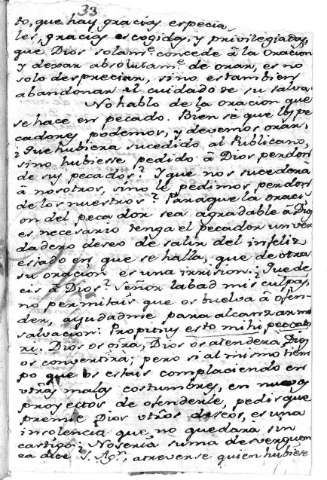 33
to, que hay gracias especia-
les, gracias escogidas, y privilegiadas,
que Dios solamte concede a la Oracion
y dexar absolutamte de orar, es no
solo despreciar, sino es tambien
abandonar el cuidado de su salva.
No hablo de la oracion que
se hace en pecado. Bien se que los pe-
cadores podemos, y devemos orar,
¿Que hubiera sucedido al Publicano,
sino hubiesse pedido à Dios perdon
de sus pecados? Y que nos sucederia
à nosotros, sino le pedimos perdon
de los nuestros? Para que la oraci-
on del pecador sea agradable à Dios
es necesario tenga el pecador un ver-
dadero deseo de salir del infeliz
estado en que se halla, que de otra
su oracion es una irrision. ¿Que de-
cis à Dios? Señor labad mis culpas,
no permitais que os buelva à ofen-
der, ayudadme para alcanzar mi
salvacion: propitius esto mihi peccato-
ri. Dios os oirà, Dios os atenderà, Dios
os convertirà; pero si al mismo tiem-
po que os estais complaciendo en
vtras malas costumbres, en nuevos
proyectos de ofenderle, pedis que
premie Dios vtros deseos, es una
insolencia que no quedarà sin
castigo. ¿No seria suma desverguen-
za dice S. Agn, atreverse quien hubiese